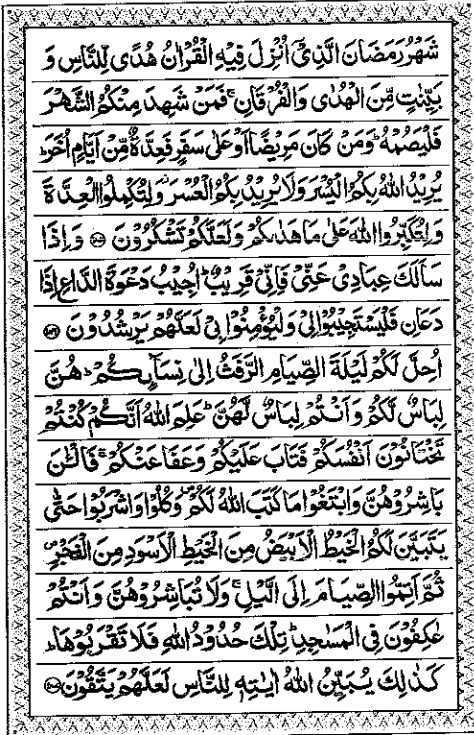 شَهْرُ رَمَضَانَ الَّذِیْۤ اُنْزِلَ فِیْهِ الْقُرْاٰنُ هُدًی لِّلنَّاسِ وَ
بَیِّنٰتٍ مِّنَ الْهُدٰی وَالْفُرْقَانِ ۚ فَمَنْ شَهِدَ مِنْكُمُ الشَّهْرَ
فَلْیَصُمْهُ ؕ وَمَنْ كَانَ مَرِیْضًا اَوْ عَلٰی سَفَرٍ فَعِدَّةٌ مِّنْ اَیَّامٍ اُخَرَ ؕ
یُرِیْدُ اللّٰهُ بِكُمُ الْیُسْرَ وَلَا یُرِیْدُ بِكُمُ الْعُسْرَ ؗ وَلِتُكْمِلُوا الْعِدَّةَ
وَلِتُكَبِّرُوا اللّٰهَ عَلٰی مَا هَدٰىكُمْ وَلَعَلَّكُمْ تَشْكُرُوْنَ ﴿۱۸۵﴾ وَاِذَا
سَاَلَكَ عِبَادِیْ عَنِّیْ فَاِنِّیْ قَرِیْبٌ ؕ اُجِیْبُ دَعْوَةَ الدَّاعِ اِذَا
دَعَانِ فَلْیَسْتَجِیْبُوْا لِیْ وَلْیُؤْمِنُوْا بِیْ لَعَلَّهُمْ یَرْشُدُوْنَ ﴿۱۸۶﴾
اُحِلَّ لَكُمْ لَیْلَةَ الصِّیَامِ الرَّفَثُ اِلٰی نِسَآىِٕكُمْ ؕ هُنَّ
لِبَاسٌ لَّكُمْ وَاَنْتُمْ لِبَاسٌ لَّهُنَّ ؕ عَلِمَ اللّٰهُ اَنَّكُمْ كُنْتُمْ
تَخْتَانُوْنَ اَنْفُسَكُمْ فَتَابَ عَلَیْكُمْ وَعَفَا عَنْكُمْ ۚ فَالْـٰٔنَ
بَاشِرُوْهُنَّ وَابْتَغُوْا مَا كَتَبَ اللّٰهُ لَكُمْ ۪ وَكُلُوْا وَاشْرَبُوْا حَتّٰی
یَتَبَیَّنَ لَكُمُ الْخَیْطُ الْاَبْیَضُ مِنَ الْخَیْطِ الْاَسْوَدِ مِنَ الْفَجْرِ ۪
ثُمَّ اَتِمُّوا الصِّیَامَ اِلَی الَّیْلِ ۚ وَلَا تُبَاشِرُوْهُنَّ وَاَنْتُمْ
عٰكِفُوْنَ فِی الْمَسٰجِدِ ؕ تِلْكَ حُدُوْدُ اللّٰهِ فَلَا تَقْرَبُوْهَا ؕ
كَذٰلِكَ یُبَیِّنُ اللّٰهُ اٰیٰتِهٖ لِلنَّاسِ لَعَلَّهُمْ یَتَّقُوْنَ ﴿۱۸۷﴾